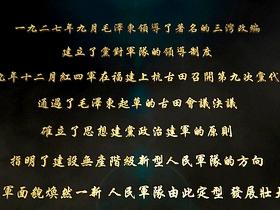 一九二七年九月毛澤東領導了著名的三灣改編
建立了黨對軍隊的領導制度
九年十二月紅四軍在福建上杭古田召開第九次黨代
通過了毛澤東起草的古田會議決議
確立了思想建黨政治建軍的原則
指明了建設無產階級新型人民軍隊的方向
軍面貌煥然一新 人民軍隊由此定型 發展壯